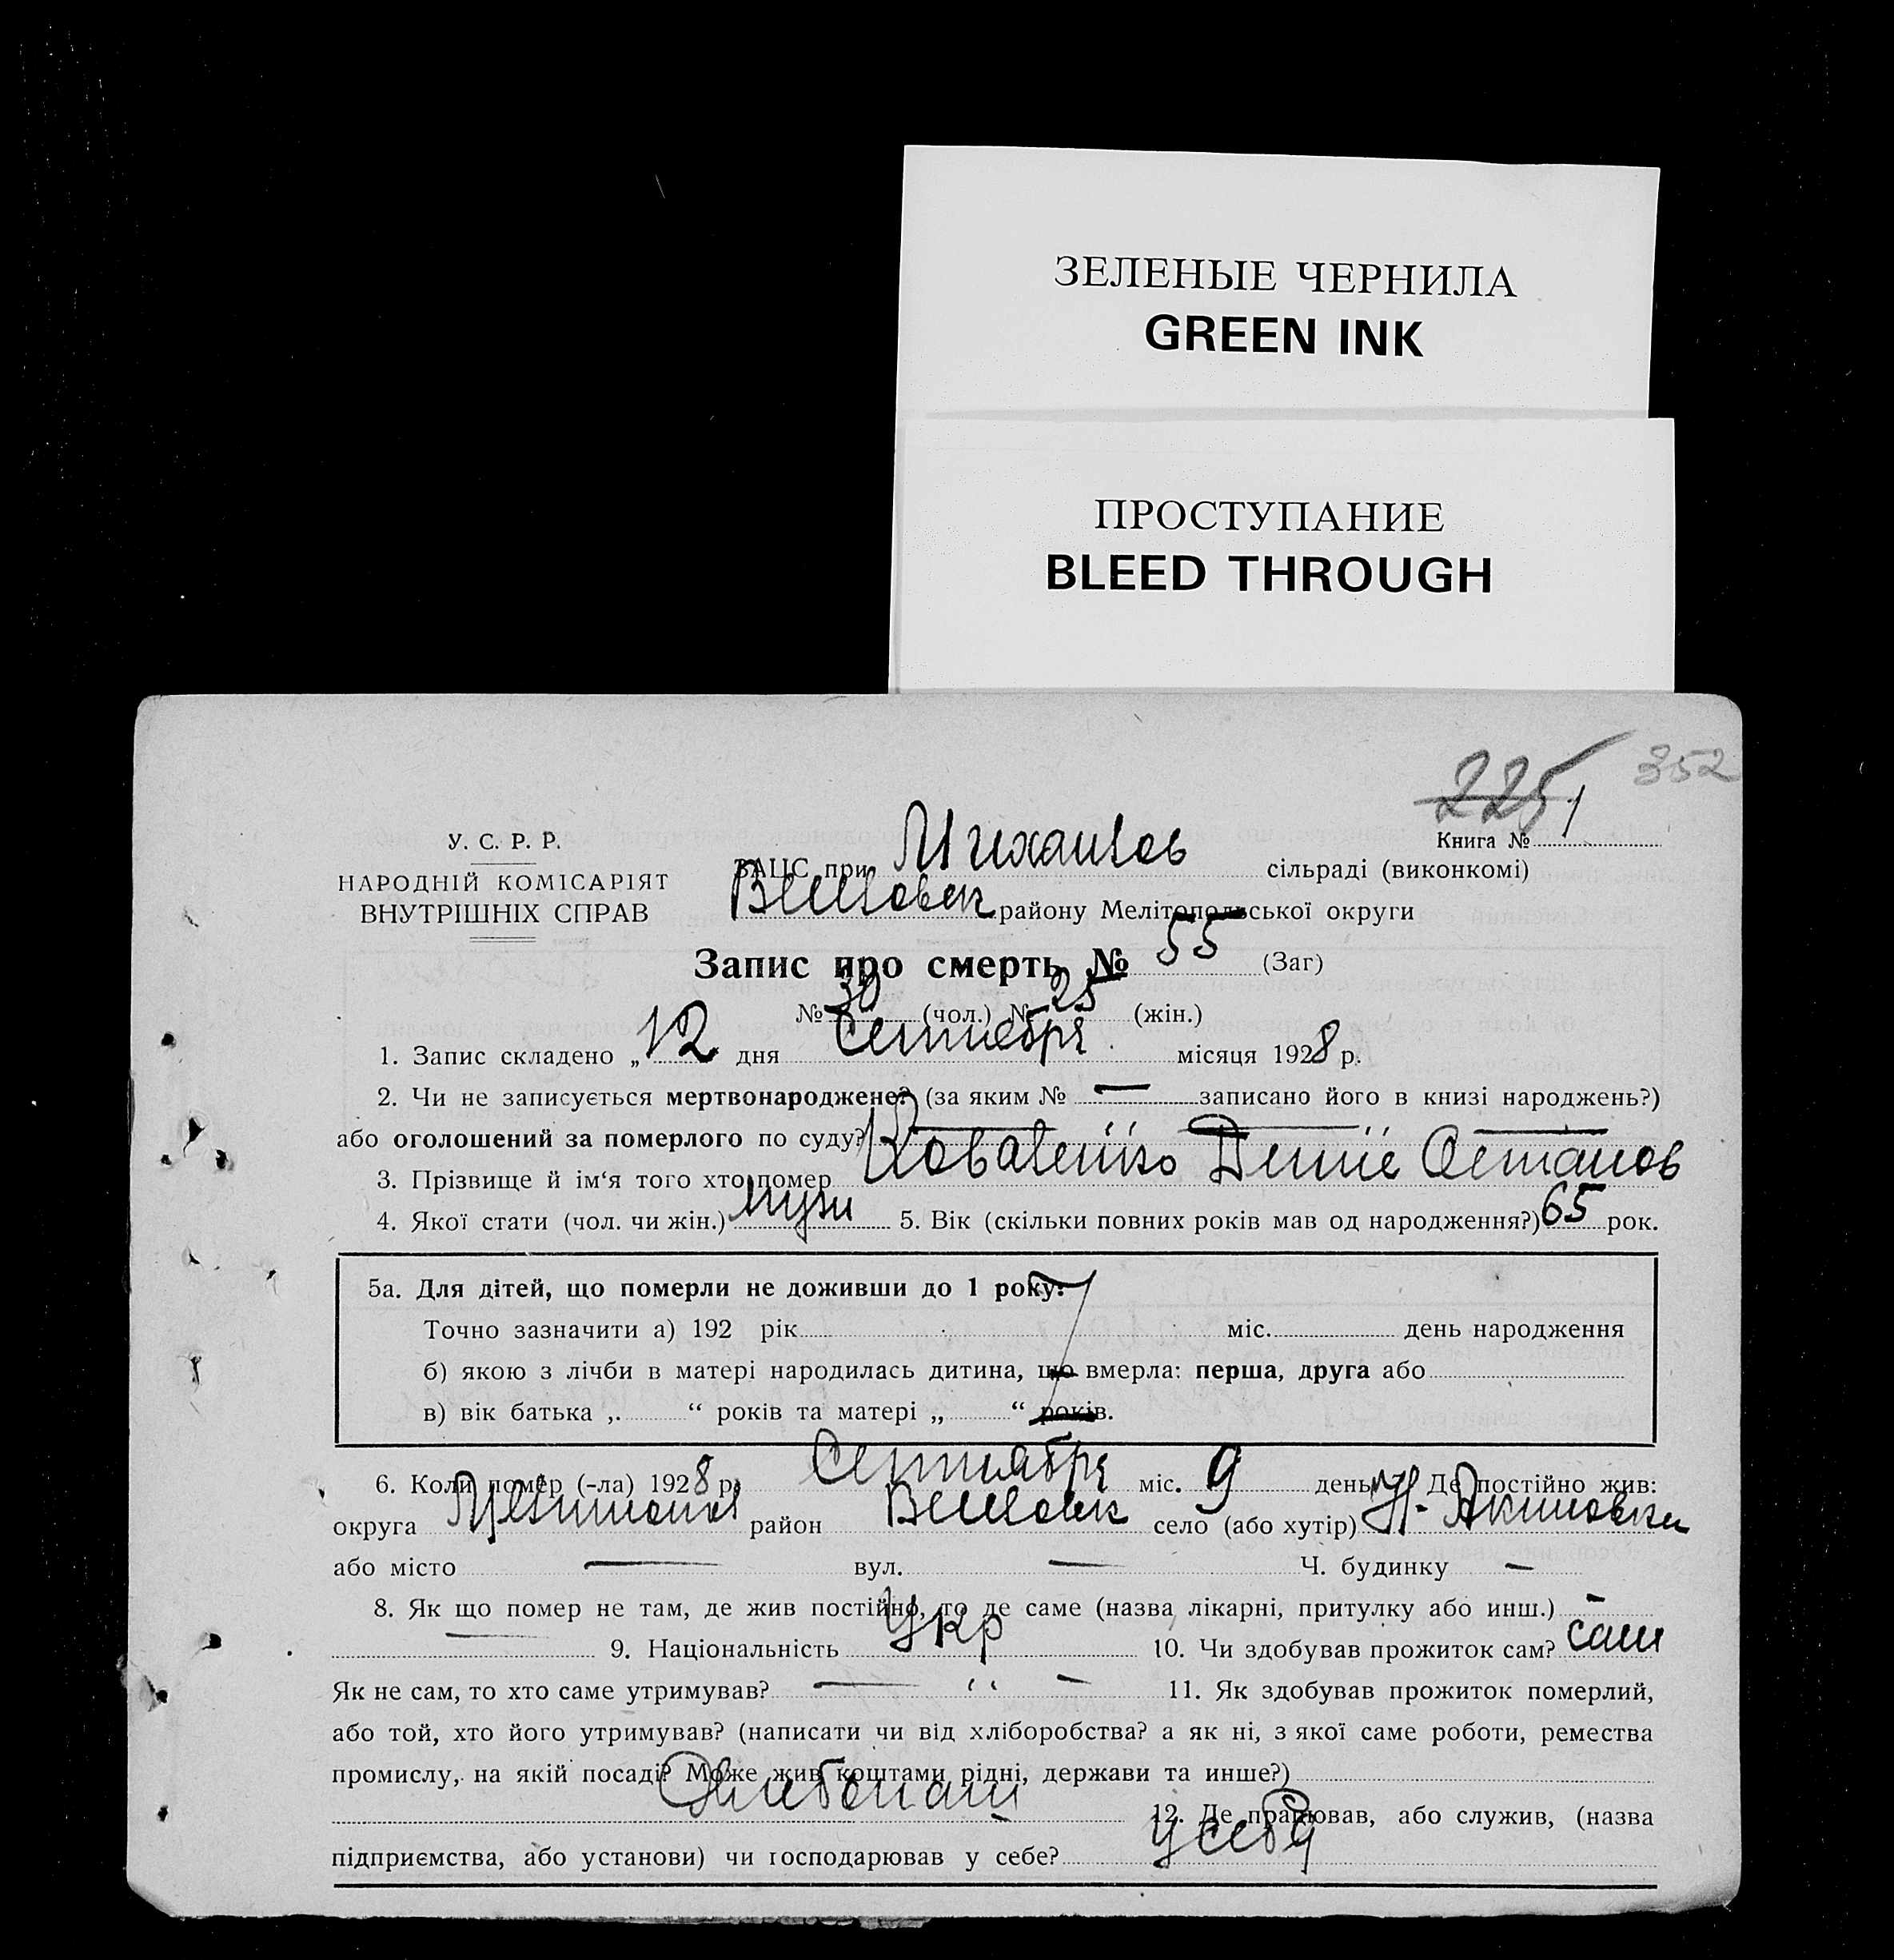 ЗЕЛЕНЫЕ ЧЕРНИЛА
GREEN INK
ПРОСТУПАНИЕ
BLEED THROUGH
225 352
У. С. Р. Р.
НАРОДНІЙ КОМІСАРІЯТ
ВНУТРІШНІХ СПРАВ
Книга № 1
ЗАЦС при Михайлов сільраді (виконкомі)
Веселовск району Мелітопольської округи
Запис про смерть № 55 (Заг)
№ 30 (чол.) № 25 (жін.)
1. Запис складено „ 12 дня Сентября місяця 1928 р.
2. Чи не записується мертвонароджене? (за яким № — записано його в книзі народжень?)
або оголошений за померлого по суду?
3. Прізвище й ім‘я того хто помер Коваленко Денис Остапов
4. Якої стати (чол. чи жін.) муж 5. Вік (скільки повних років мав од народження?) 65 рок.
5а. Для дітей, що померли не доживши до 1 року:
Точно зазначити а) 192 рік міс. день народження
б) якою з лічби в матері народилась дитина, що вмерла: перша, друга або
в) вік батька „ “ років та матері „ “ років.
6. Коли помер (-ла) 1928 р. Сентября міс. 9 день Де постійно жив:
округа Мелитопол район Веселовск село (або хутір) Н-Якимовка
або місто — вул. — Ч. будинку —
8. Як що помер не там, де жив постійно, то де саме (назва лікарні, притулку або инш.) —
— 9. Національність Укр 10. Чи здобував прожиток сам? сам
Як не сам, то хто саме утримував? — 11. Як здобував прожиток померлий,
або той, хто його утримував? (написати чи від хліборобства? а як ні, з якої саме роботи, ремества
промислу, на якій посаді? Може жив коштами рідні, держави та инше?)
Хлебопаш 12. Де працював, або служив, (назва
підприємства, або установи) чи господарював у себе? у себя